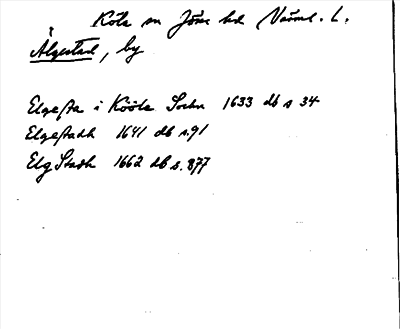 Köla sn Jösse hd Värml. L.
Älgestad, by
Elgesta i Kööla Sochn 1633 db s 34
Elgestadh 1641 db s.91
Elg Stadh 1662 db s.877